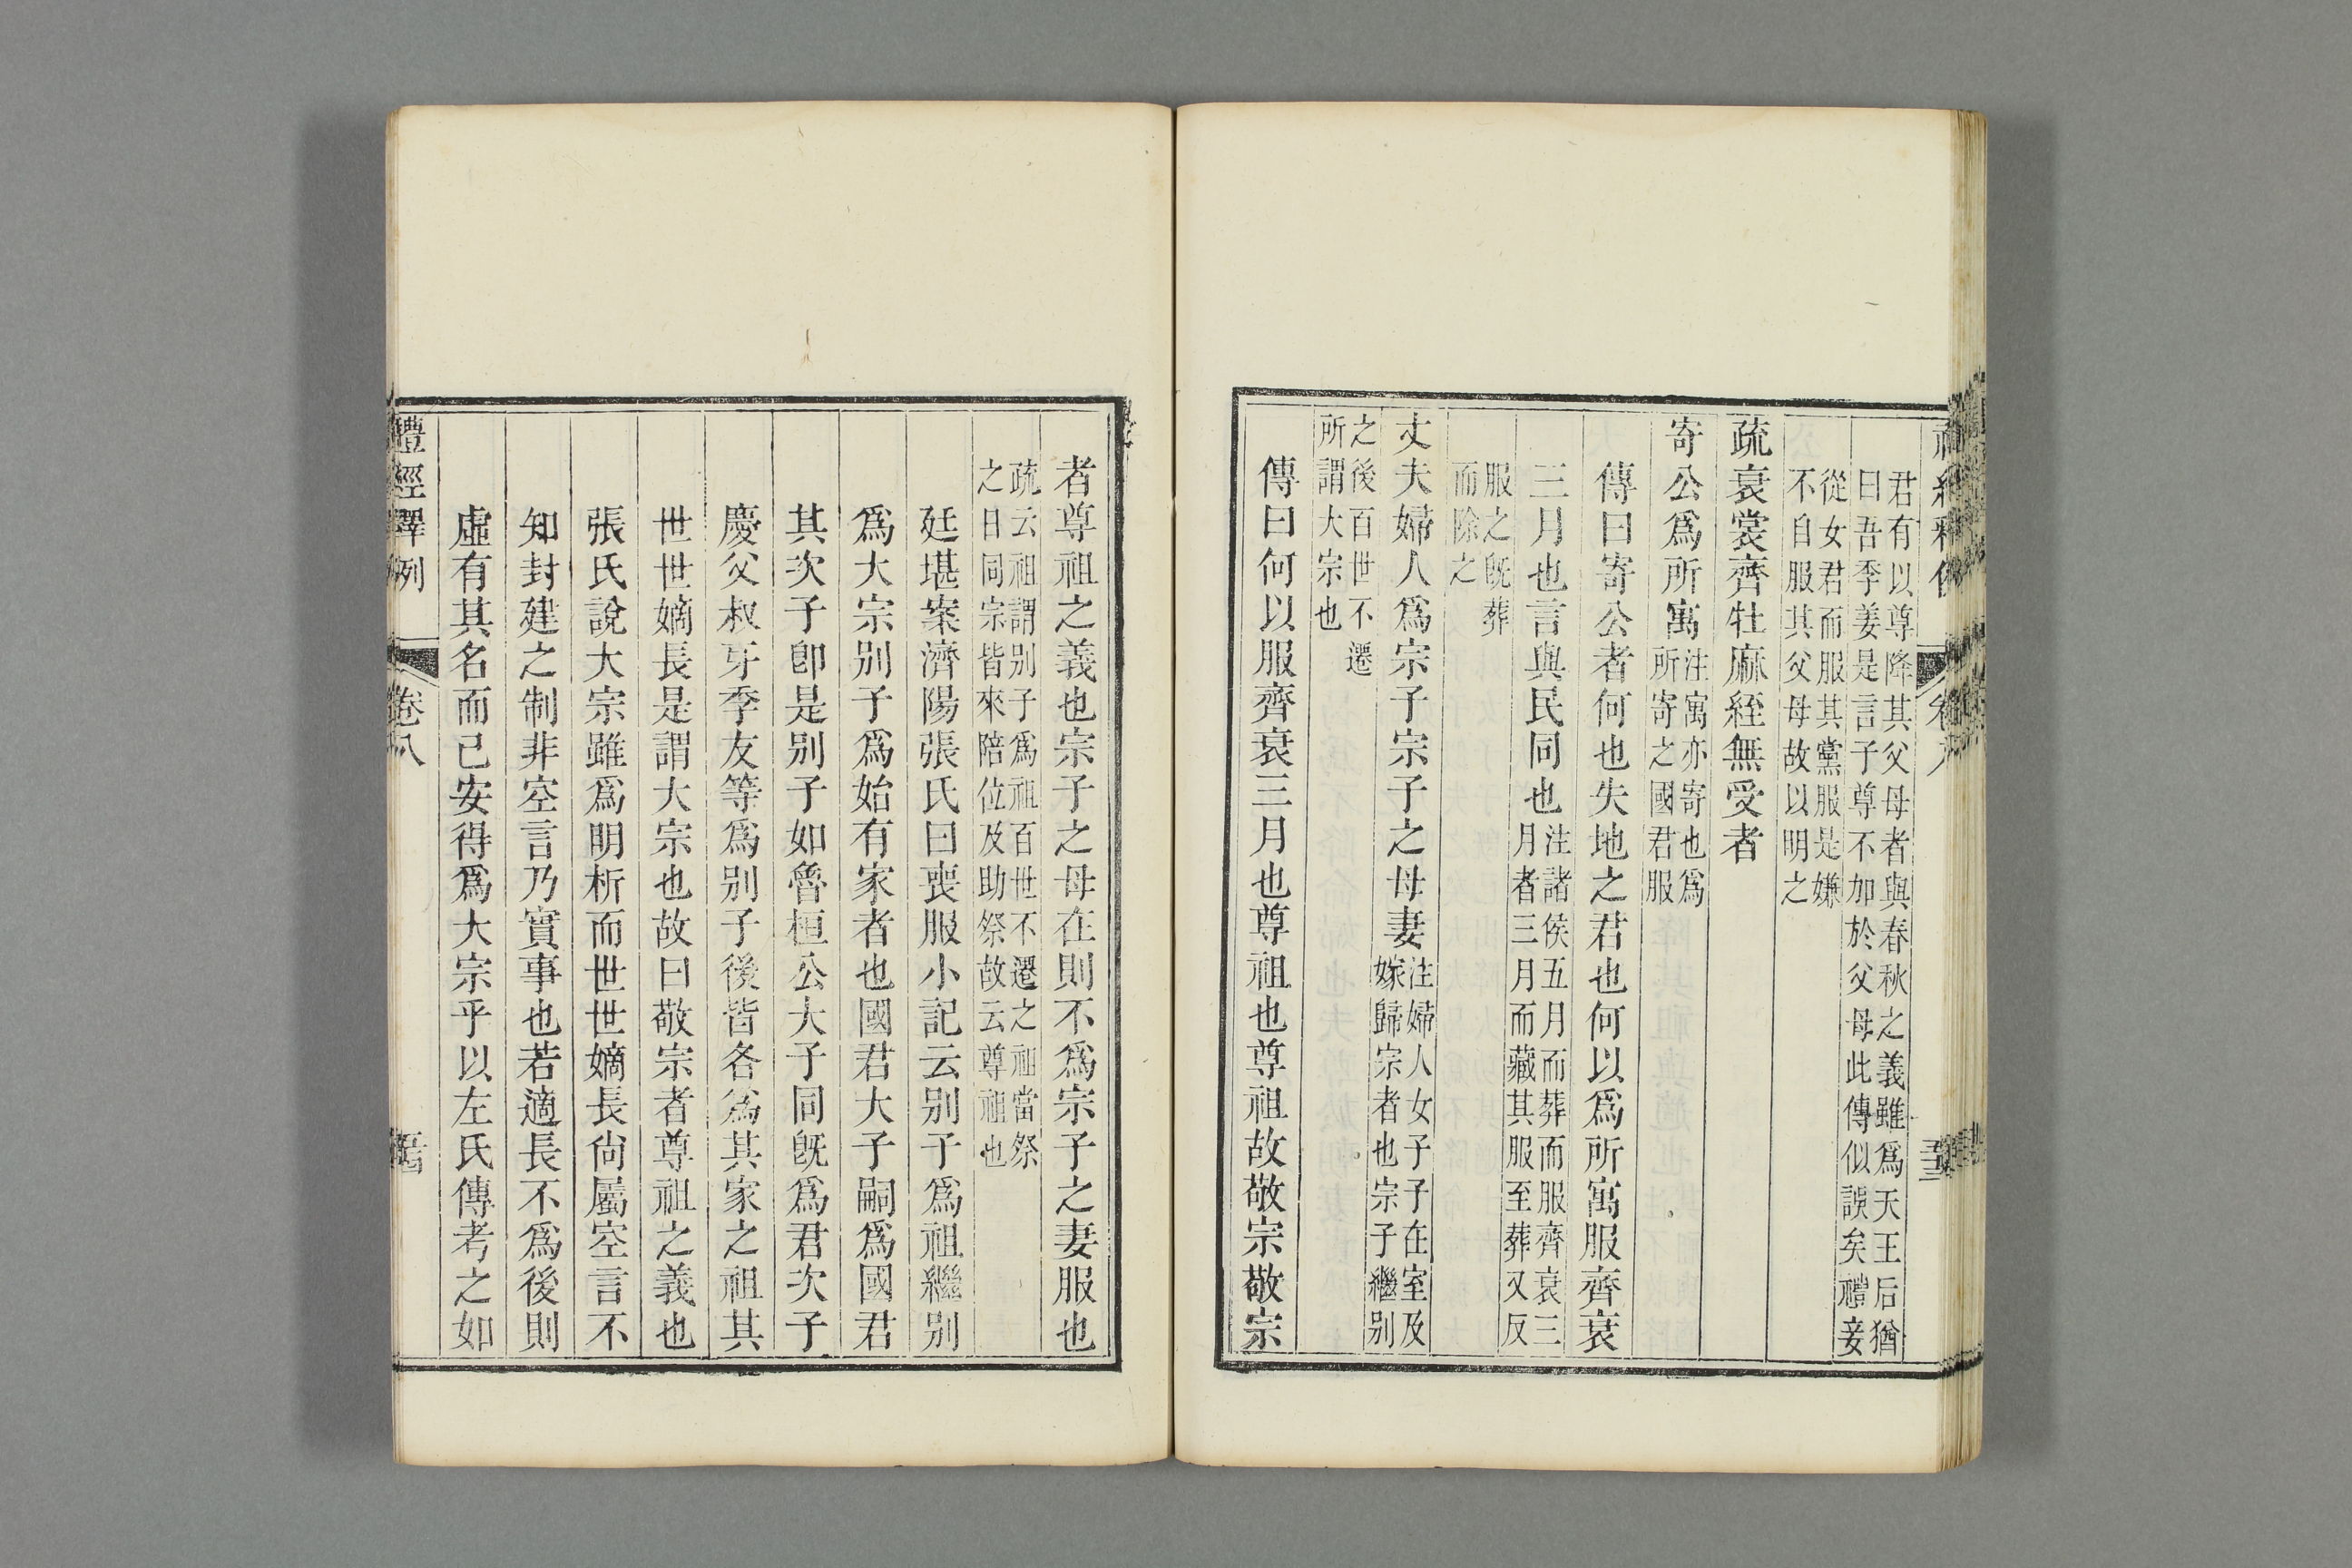 君有以尊降其父母者與春秋之義雖爲天王后猶
曰吾季姜是言子尊不加於父母此傳似誤矣禮妾
從女君而服其黨服是嫌
不自服其父母故以明之
疏衰裳齊牡麻絰無受者
寄公爲所寓注寓亦寄也爲
所寄之國君服
傳曰寄公者何也失地之君也何以爲所寓服齊衰
三月也言與民同也注諸侯五月而葬而服齊衰三
月者三月而藏其服至葬又反
服之旣葬
而除之
丈夫婦人爲宗子宗子之母妻注婦人女子子在室及
嫁歸宗者也宗子繼別
之後百世不遷
所謂大宗也
傳曰何以服齊衰三月也尊祖也尊祖故敬宗敬宗
者尊祖之義也宗子之母在則不爲宗子之妻服也
疏云祖謂別子爲祖百世不遷之祖當祭
之日同宗皆來陪位及助祭故云尊祖也
廷堪案濟陽張氏曰喪服小記云別子爲祖繼別
爲大宗別子爲始有家者也國君大子嗣爲國君
其次子卽是別子如魯桓公大子同旣爲君次子
慶父叔牙季友等爲別子後皆各爲其家之祖其
世世嫡長是謂大宗也故曰敬宗者尊祖之義也
張氏說大宗雖爲明析而世世嫡長尙屬空言不
知封建之制非空言乃實事也若適長不爲後則
虛有其名而已安得爲大宗乎以左氏傳考之如
禮經釋例 卷八